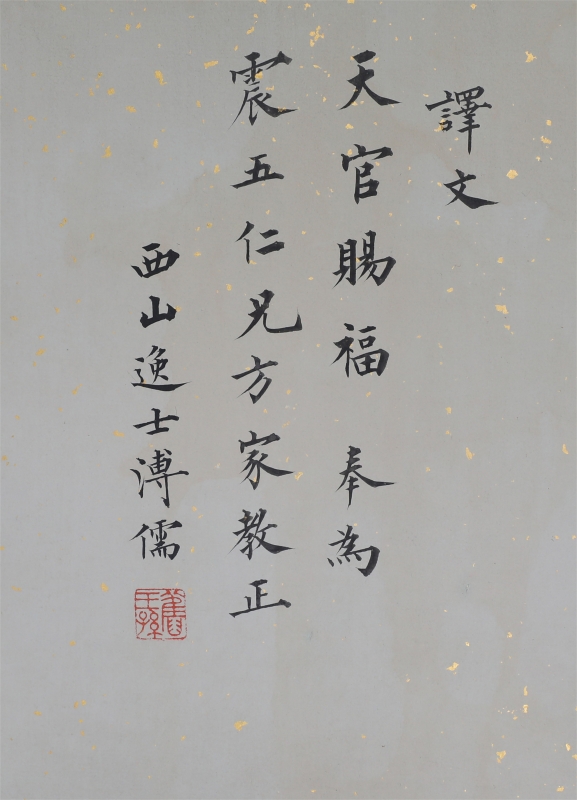 譯文
天官賜福 奉為
震五仁兄方家教正
西山逸士溥儒
舊王孫